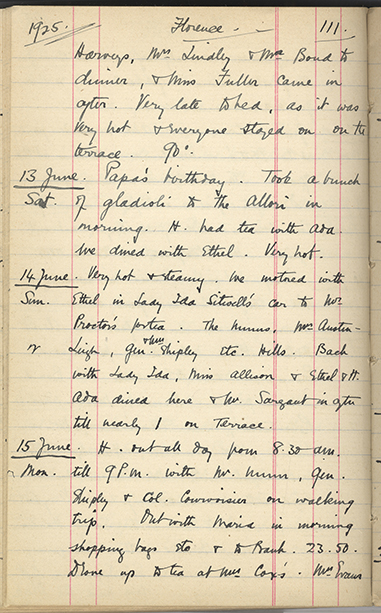 1925. Florence. 111.
Harveys, Mrs Lindley & Mrs Bond to
dinner, & Miss Fuller came in
after. Very late to bed, as it was
very hot & everyone stayed on on the
terrace. 90°.
13 June. Papa's birthday. Took a bunch
Sat. of gladioli to the Allori in
morning. H. had tea with Ada.
We dined with Ethel. Very hot.
14 June. Very hot & steamy. We motored with
Sun. Ethel in Lady Ida Sitwell's car to Mrs
Proctor's for tea. The Munns, Mrs Austen-
Leigh, Gen. & Mrs Shipley etc. Hills. Back
with Lady Ida, Miss Allison & Ethel & H.
Ada dined here & Mr. Sargaunt in after
till nearly 1 on Terrace.
15 June. H. out all day from 8.30 am.
Mon. till 9 P.m. with Mr. Munn, Gen.
Shipley & Col. Courvoisier on walking
trip. Out with Maria in morning
shopping bags etc & to Bank. 23.50.
Drove up to tea at Mrs Cox's. Mrs Evans